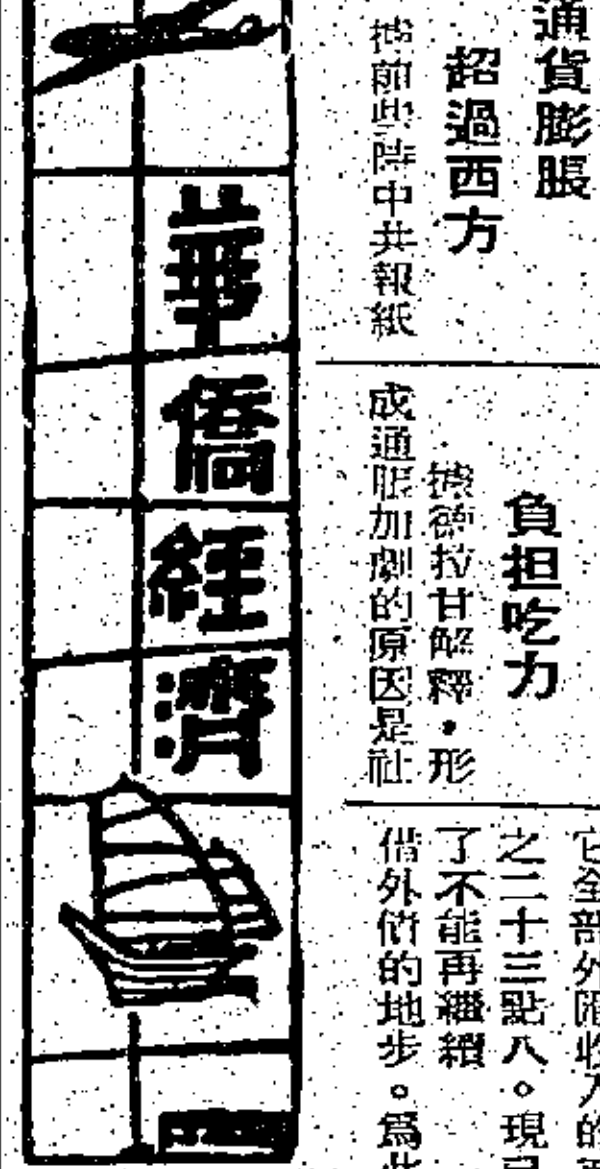 通貨膨脹
超過西方
據前些時中共報紙
負担吃力
據德拉甘解釋・形
成通脹加劇的原因是社
它全部外匯收入的
之二十三點八。現已
了不能再繼續
借外債的地步。爲此
華僑經濟